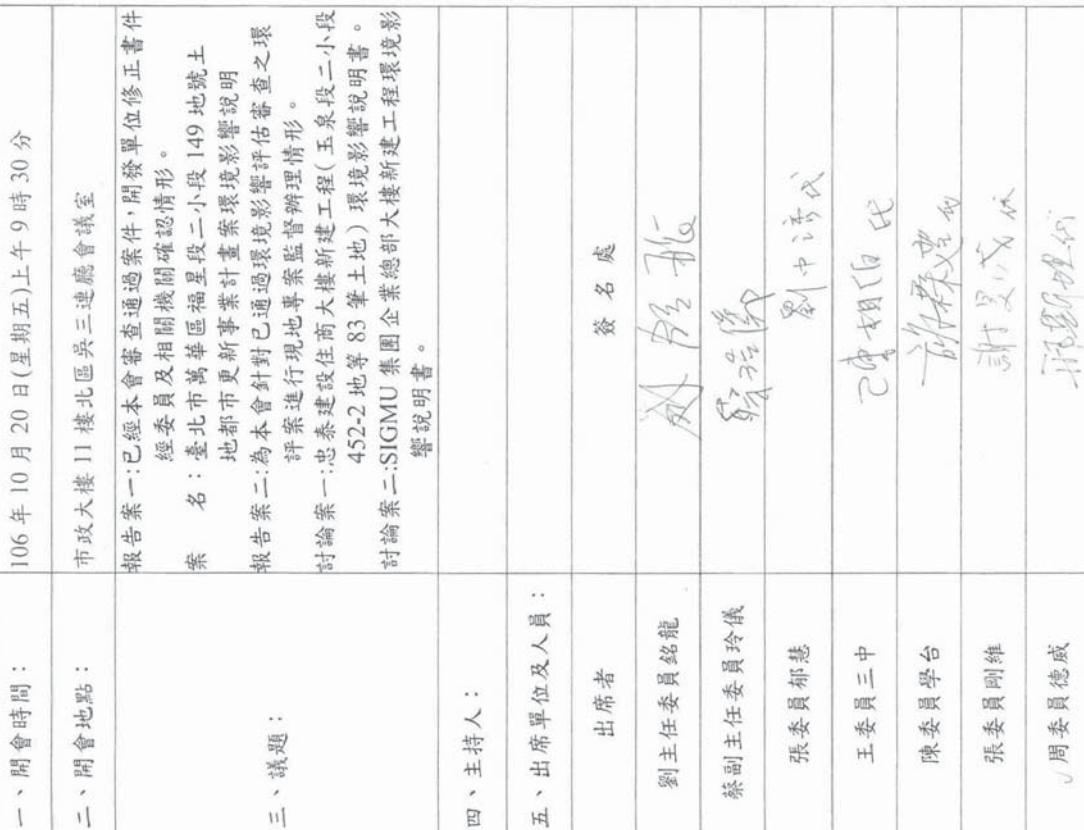 一、開會時間：
106 年 10 月 20 日(星期五)上午 9 時 30 分
二、開會地點：
市政大樓 11 樓北區吳三連廳會議室
三、議題：
報告案一:已經本會審查通過案件，開發單位修正書件
經委員及相關機關確認情形。
案　　名：臺北市萬華區福星段二小段 149 地號土
地都市更新事業計畫案環境影響說明
報告案二:為本會針對已通過環境影響評估審查之環
評案進行現地專案監督辦理情形。
討論案一:忠泰建設住商大樓新建工程(玉泉段二小段
452-2 地等 83 筆土地) 環境影響說明書。
討論案二:SIGMU 集團企業總部大樓新建工程環境影
響說明書。
四、主持人：
五、出席單位及人員：
出席者
簽名處
劉主任委員銘龍
蔡副主任委員玲儀
張委員郁慧
王委員三中
陳委員學台
張委員剛維
周委員德威